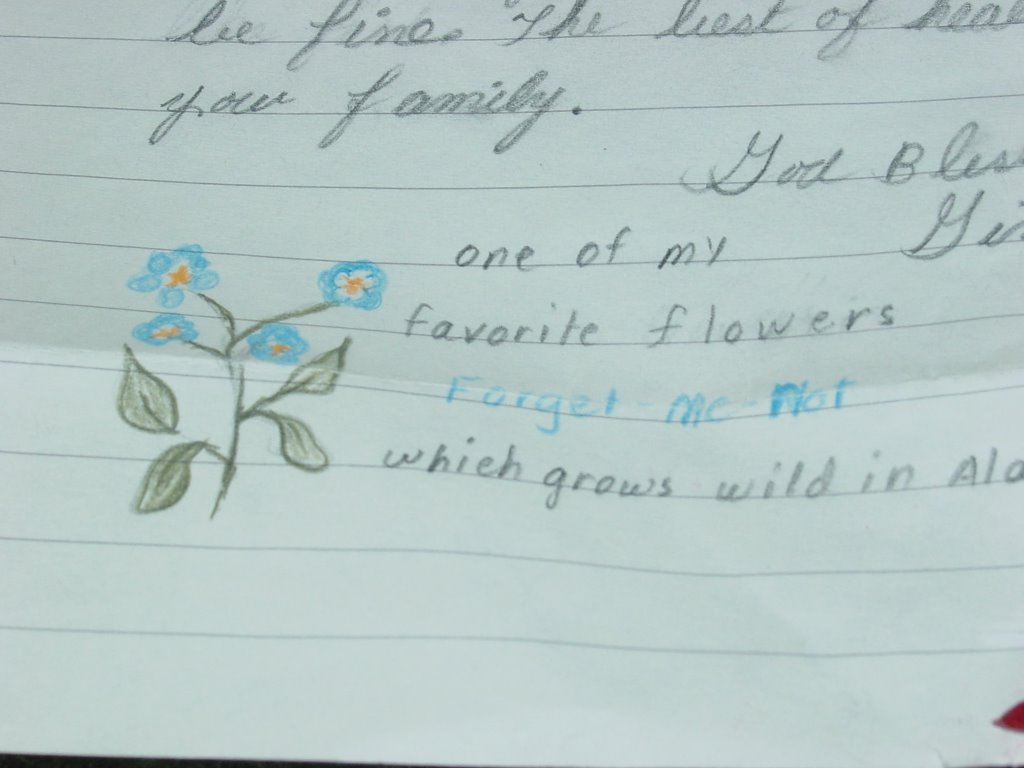 be fine. The best of heal
your family.
God Bles
Gi
one of my
favorite flowers
Forget-Me-Not
which grows wild in Ala